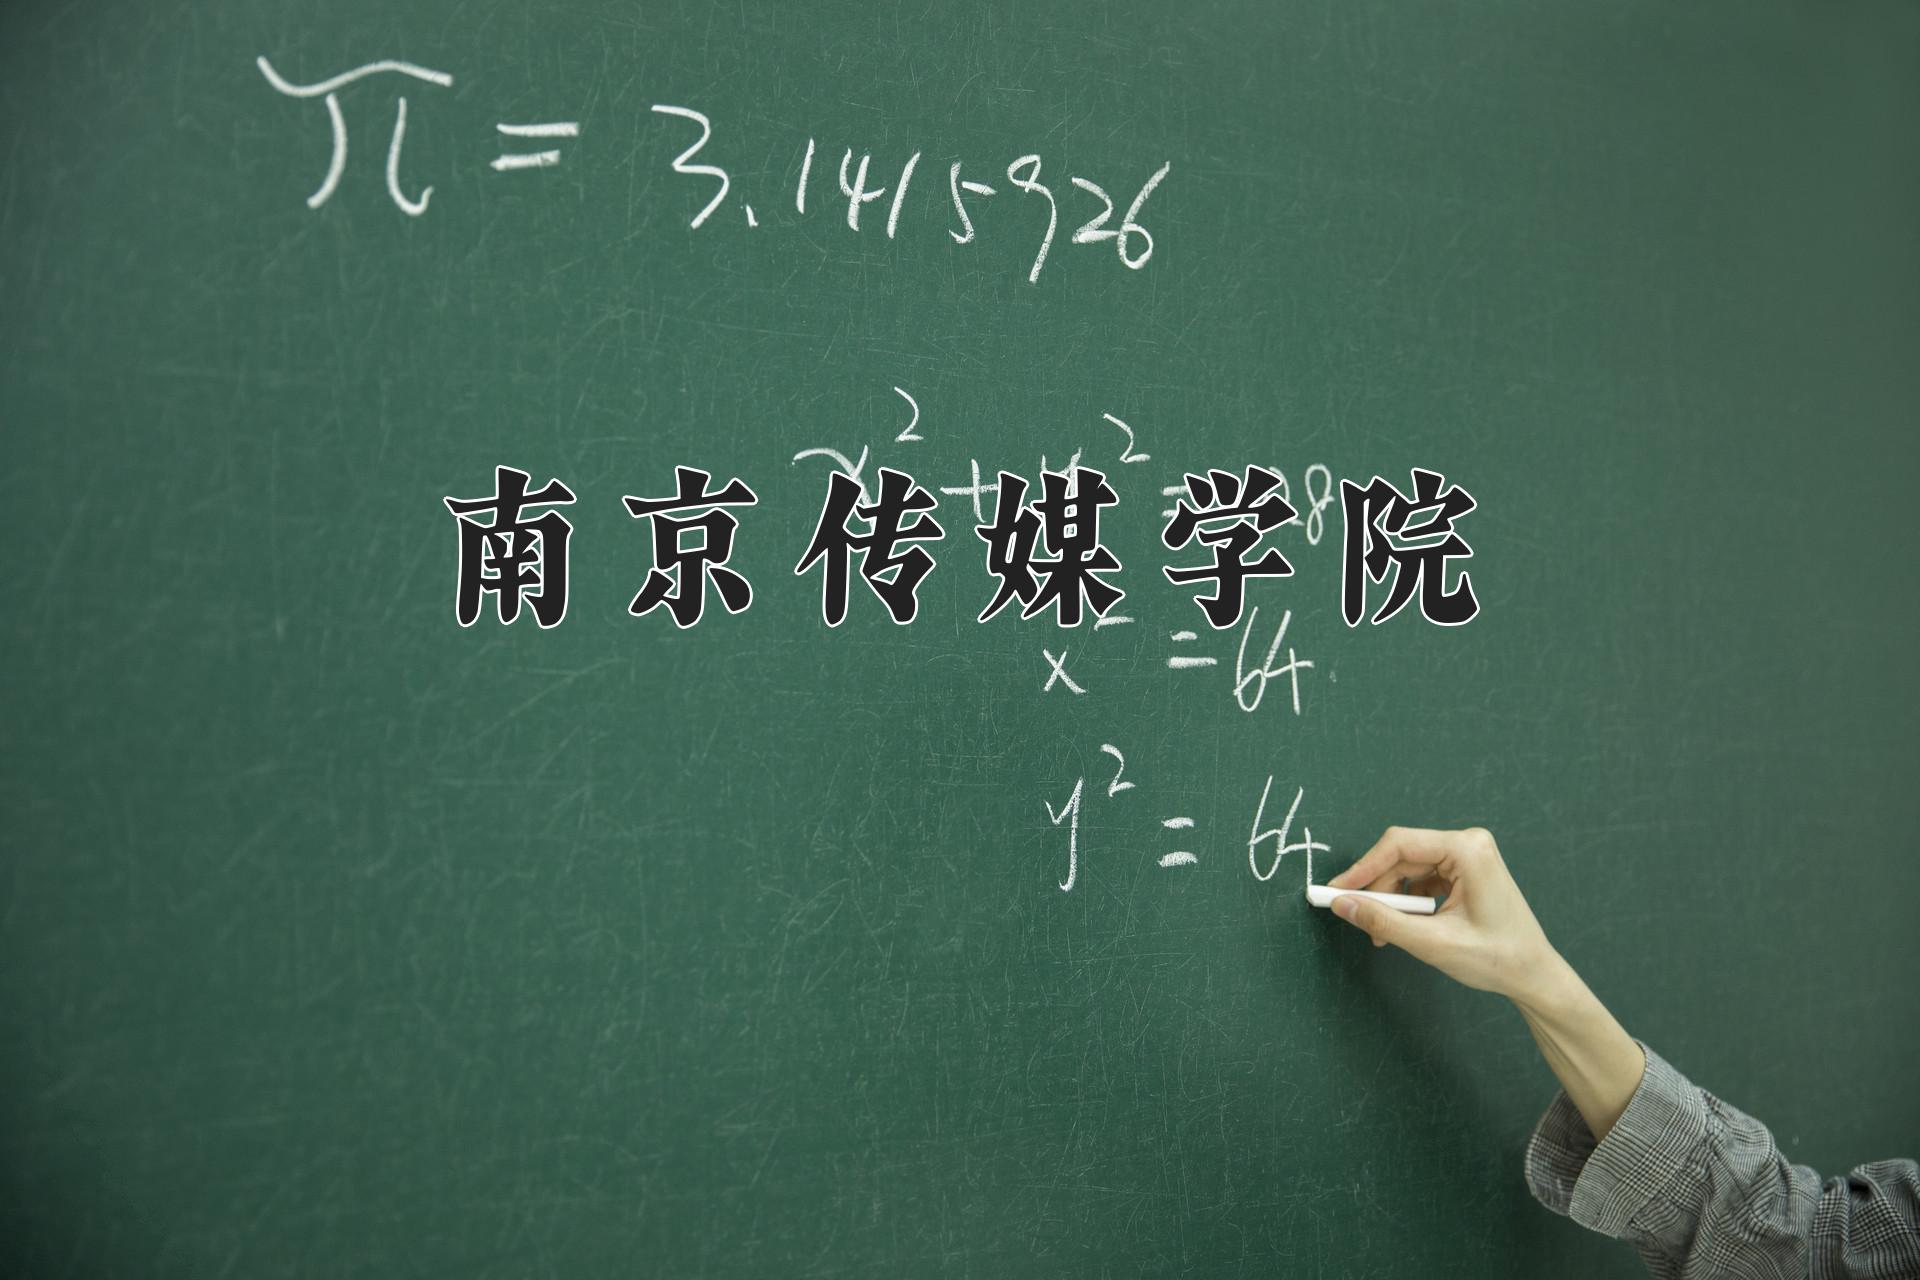 π = 3.1415926
x² + y² = 128
南京传媒学院
x² = 64
y² = 64